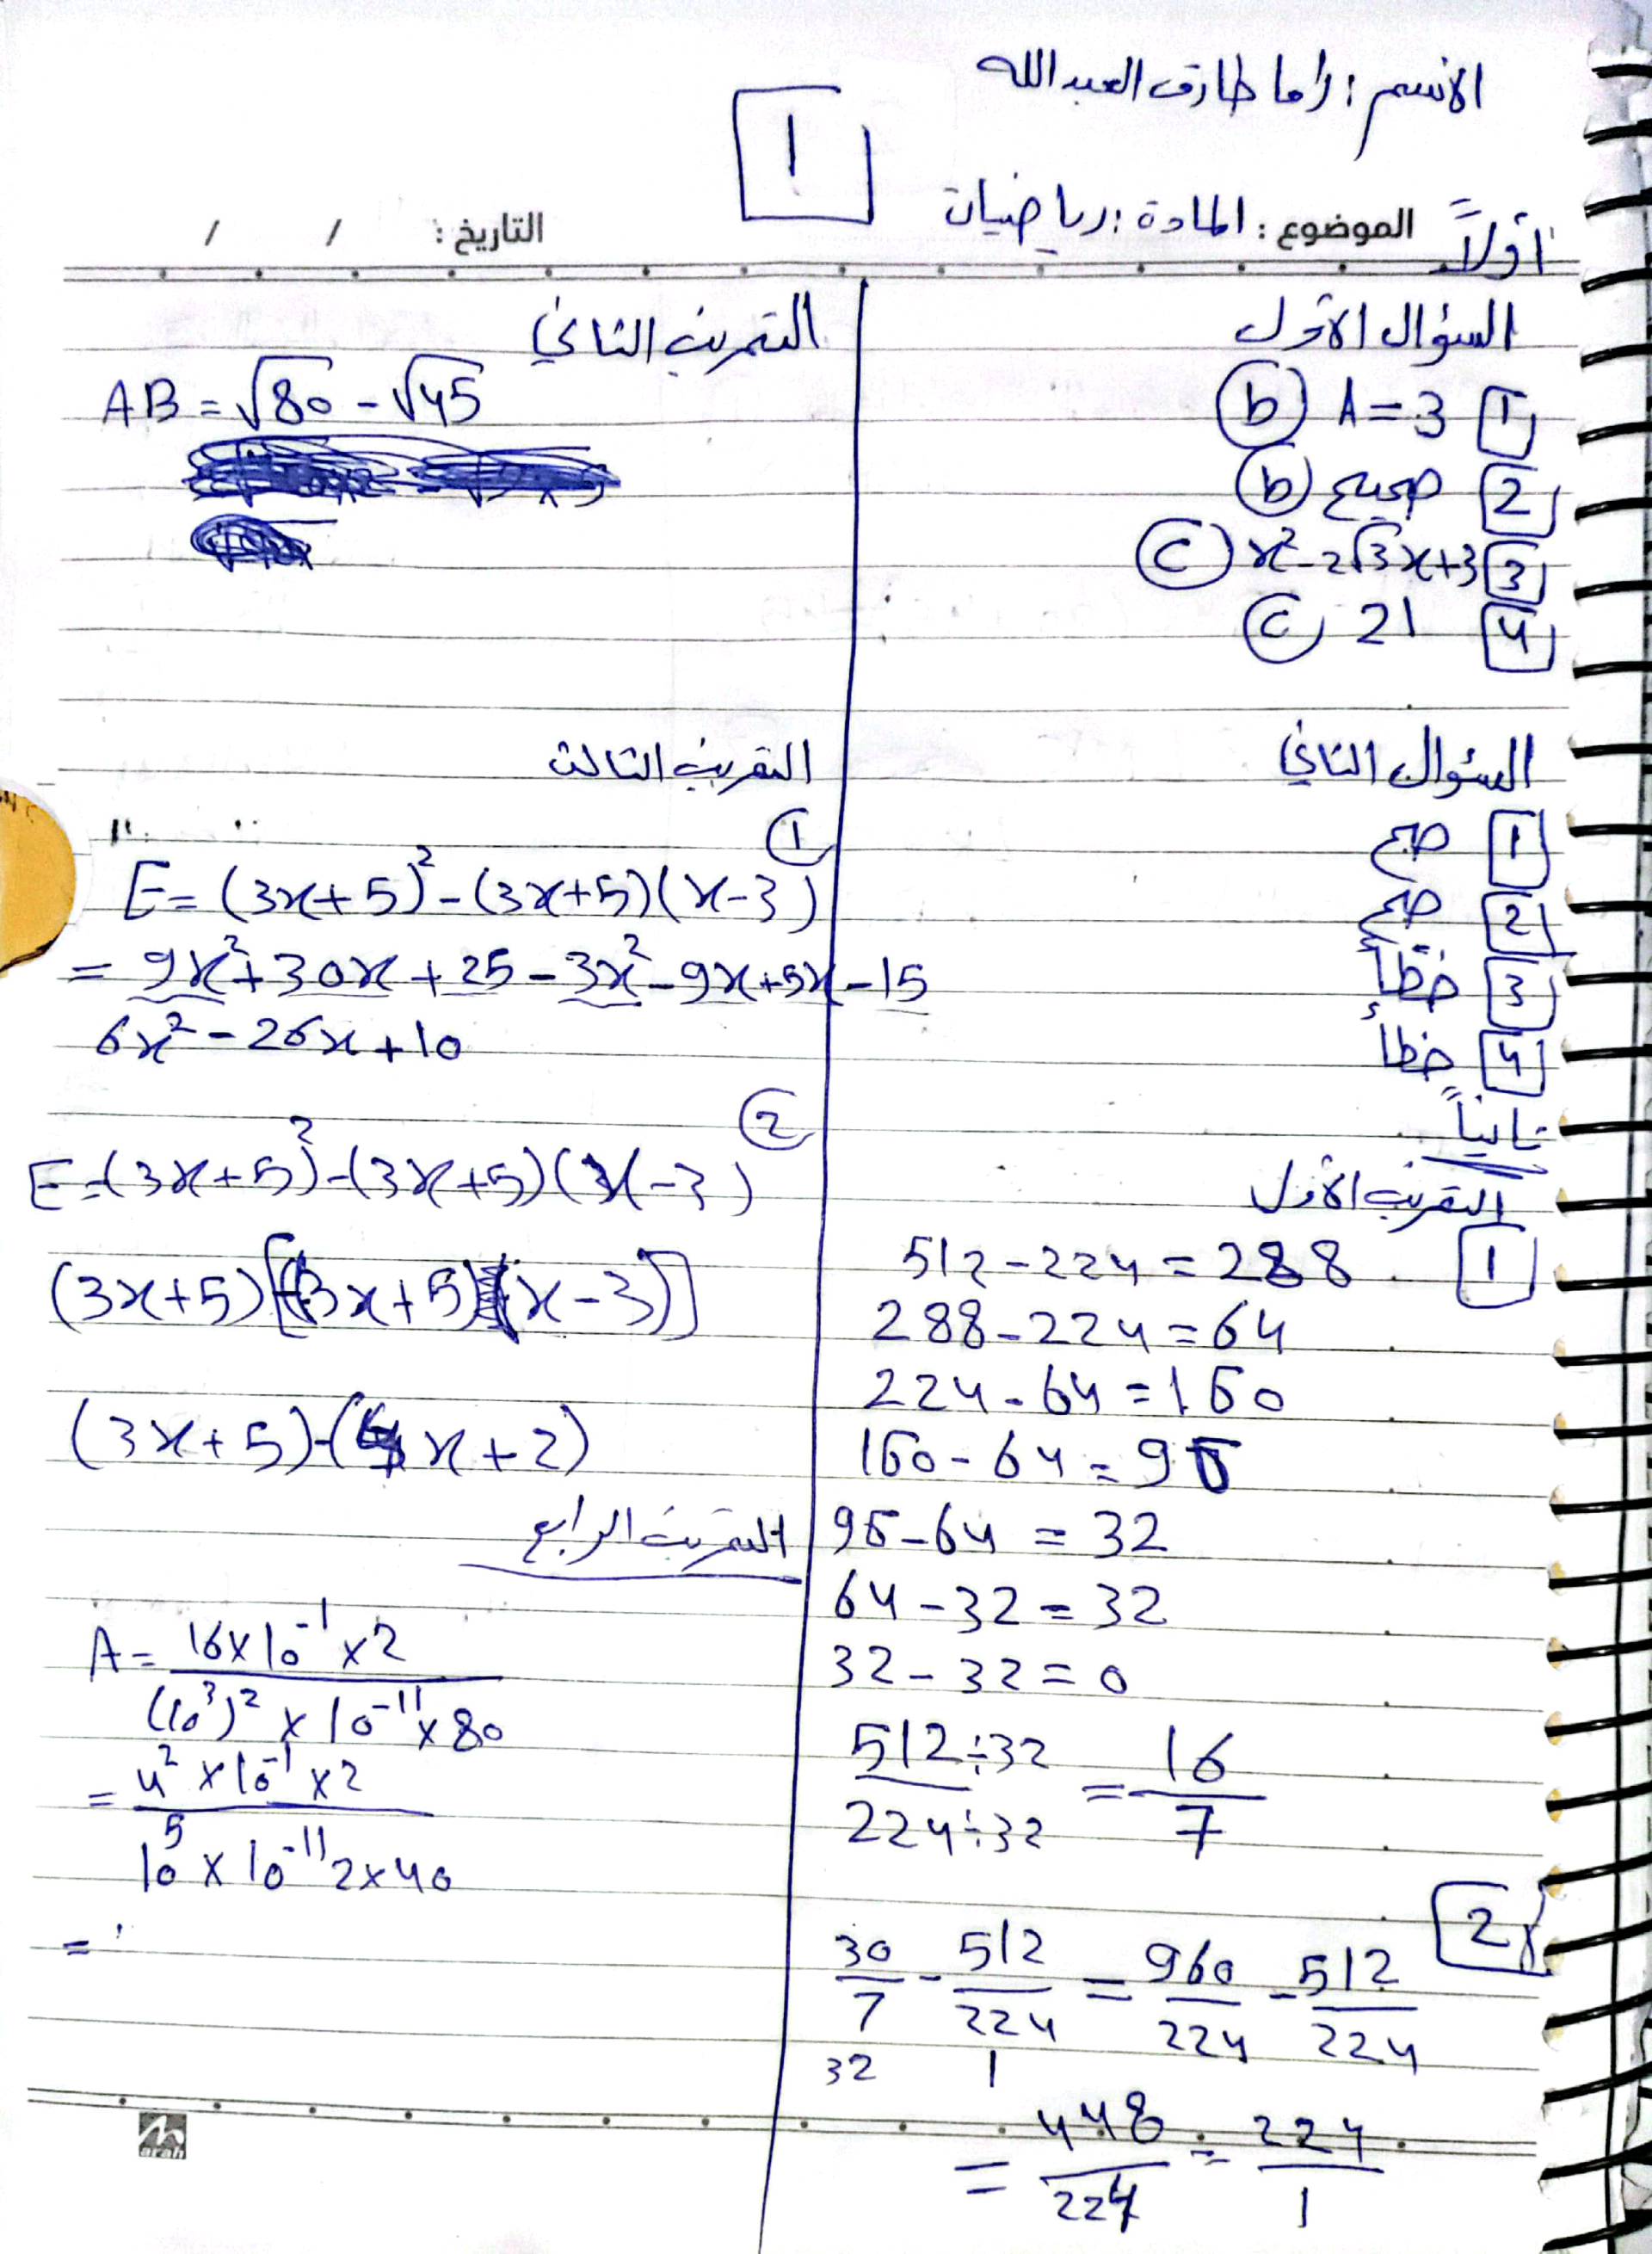 الاسم : راما طارق العبدالله
1
أولاً
الموضوع : المادة : رياضيات
التاريخ : / /
السؤال الأول
1 A = 3 b
2 صحيح b
3 x² - 2√3x + 3 c
4 21 c
السؤال الثاني
1 صح
2 صح
3 خطأ
4 خطأ
ثانياً
التمرين الأول
1 512 - 224 = 288
288 - 224 = 64
224 - 64 = 160
160 - 64 = 96
96 - 64 = 32
64 - 32 = 32
32 - 32 = 0
512 ÷ 32 / 224 ÷ 32 = 16 / 7
2 30/7 - 512/224 = 960/224 - 512/224
32 1
= 448/224 = 224/1
التمرين الثاني
AB = √80 - √45
التمرين الثالث
1
E = (3x + 5)² - (3x + 5)(x - 3)
= 9x² + 30x + 25 - 3x² - 9x + 5x - 15
6x² - 26x + 10
2
E = (3x + 5)² - (3x + 5)(x - 3)
(3x + 5)[(3x + 5) (x - 3)]
(3x + 5) - (4x + 2)
التمرين الرابع
A = 16 × 10⁻¹ × 2 / (10³)² × 10⁻¹¹ × 80
= 4² × 10⁻¹ × 2 / 10⁵ × 10⁻¹¹ 2 × 40
=
arah